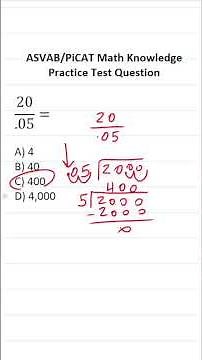 ASVAB/PiCAT Math Knowledge
Practice Test Question
20
.05
=
20
.05
A) 4
B) 40
C) 400
D) 4,000
.05 2000
400
5 2000
-2000
0